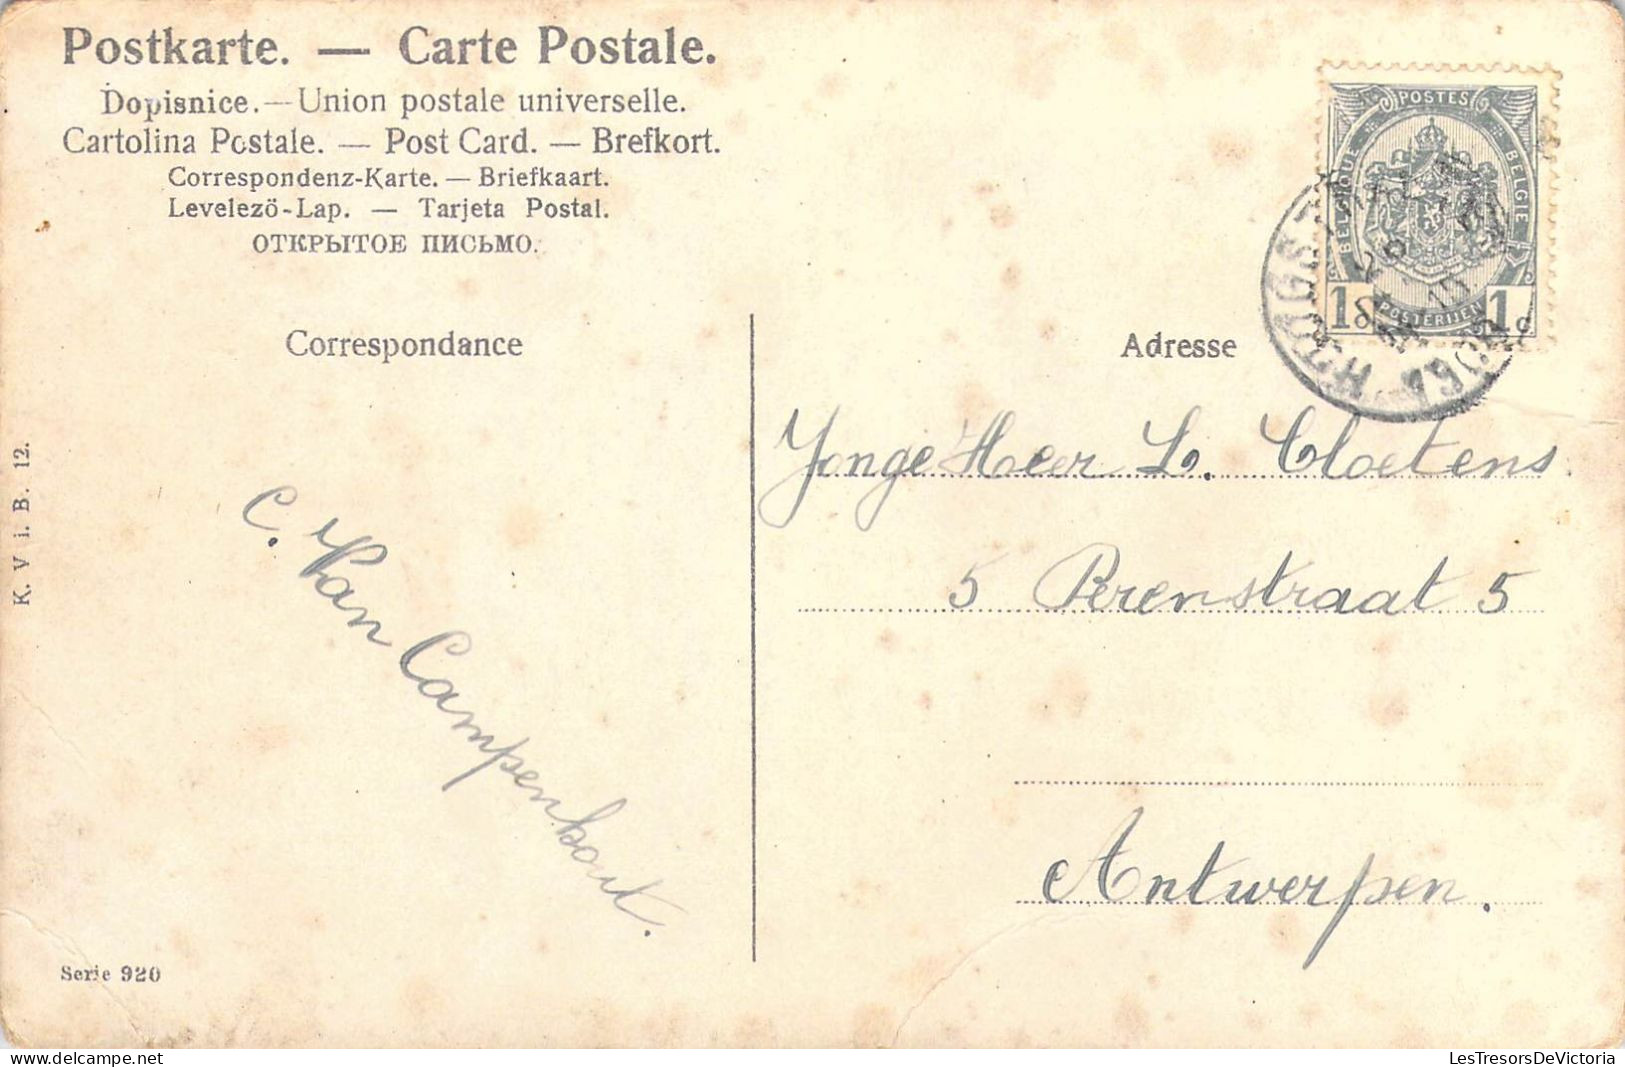 Postkarte. — Carte Postale.
Dopisnice. — Union postale universelle.
Cartolina Postale. — Post Card. — Brefkort.
Correspondenz-Karte. — Briefkaart.
Levelezö-Lap. — Tarjeta Postal.
ОТКРЫТОЕ ПИСЬМО.
POSTES
BELGIQUE
BELGIE
1 1c
POSTERIJEN
Correspondance
Adresse
Jonge Heer L. Cloetens.
5 Perenstraat 5
Antwerpen.
C. Van Campenhout.
K. V i. B. 12.
Serie 920
LesTresorsDeVictoria
delcampe.net